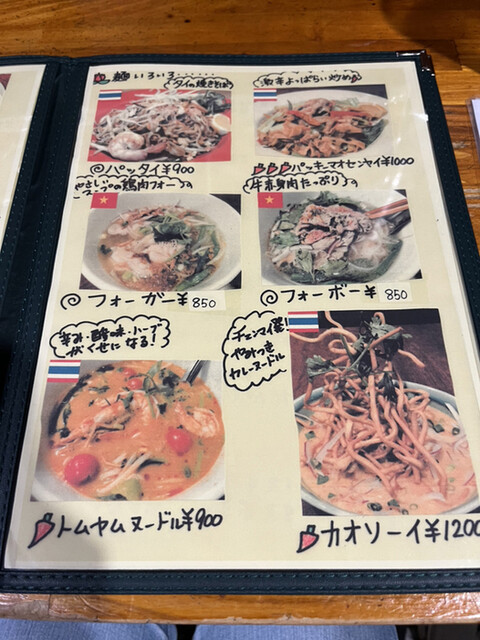 麺いろいろ......
タイの焼きそば
◎パッタイ¥900
激辛よっぱらい炒め
パッキーマオセンヤイ¥1000
やさしい
スープの鶏肉フォー
フォーガー¥850
牛赤身肉たっぷり
フォーボー¥850
辛み・酸味・ハーブ
がくせになる!
トムヤムヌードル¥900
チェンマイ発!
やみつき
カレーヌードル
カオソーイ¥1200